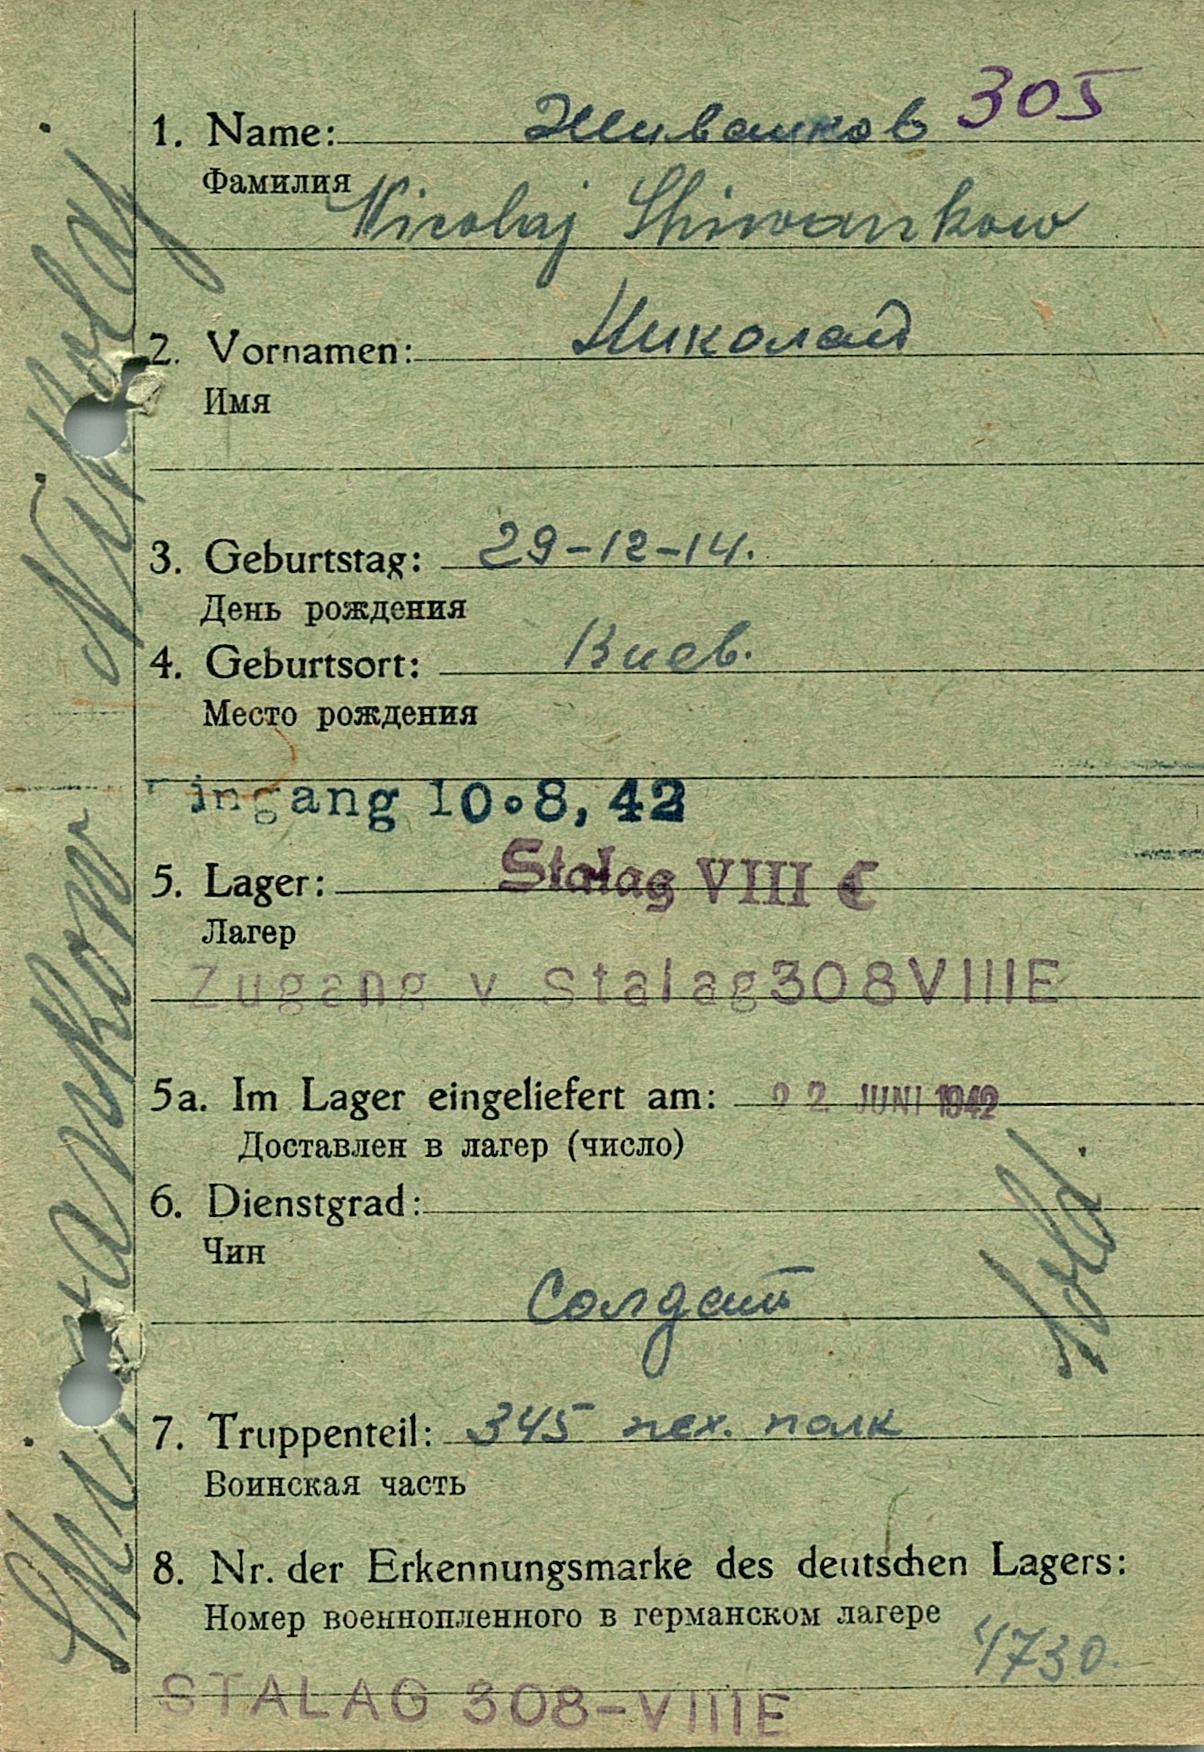 1. Name: Живанков 305
Фамилия
Nicolaj Shiwankow
2. Vornamen: Николай
Имя
3. Geburtstag: 29-12-14.
День рождения
4. Geburtsort: Киев.
Место рождения
ingang 10.8,42
5. Lager: Stalag VIII C
Лагер
Zugang v Stalag 308 VIIIE
5a. Im Lager eingeliefert am: 22 JUNI 1942
Доставлен в лагер (число)
6. Dienstgrad:
Чин
Солдат
Sold.
7. Truppenteil: 345 пех. полк
Воинская часть
8. Nr. der Erkennungsmarke des deutschen Lagers:
Номер военнопленного в германском лагере
4730.
STALAG 308-VIIIE
Shiwankow Nikolaj